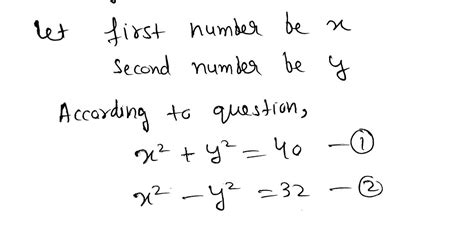 let first number be x
second number be y
According to question,
x² + y² = 40 — ①
x² - y² = 32 — ②